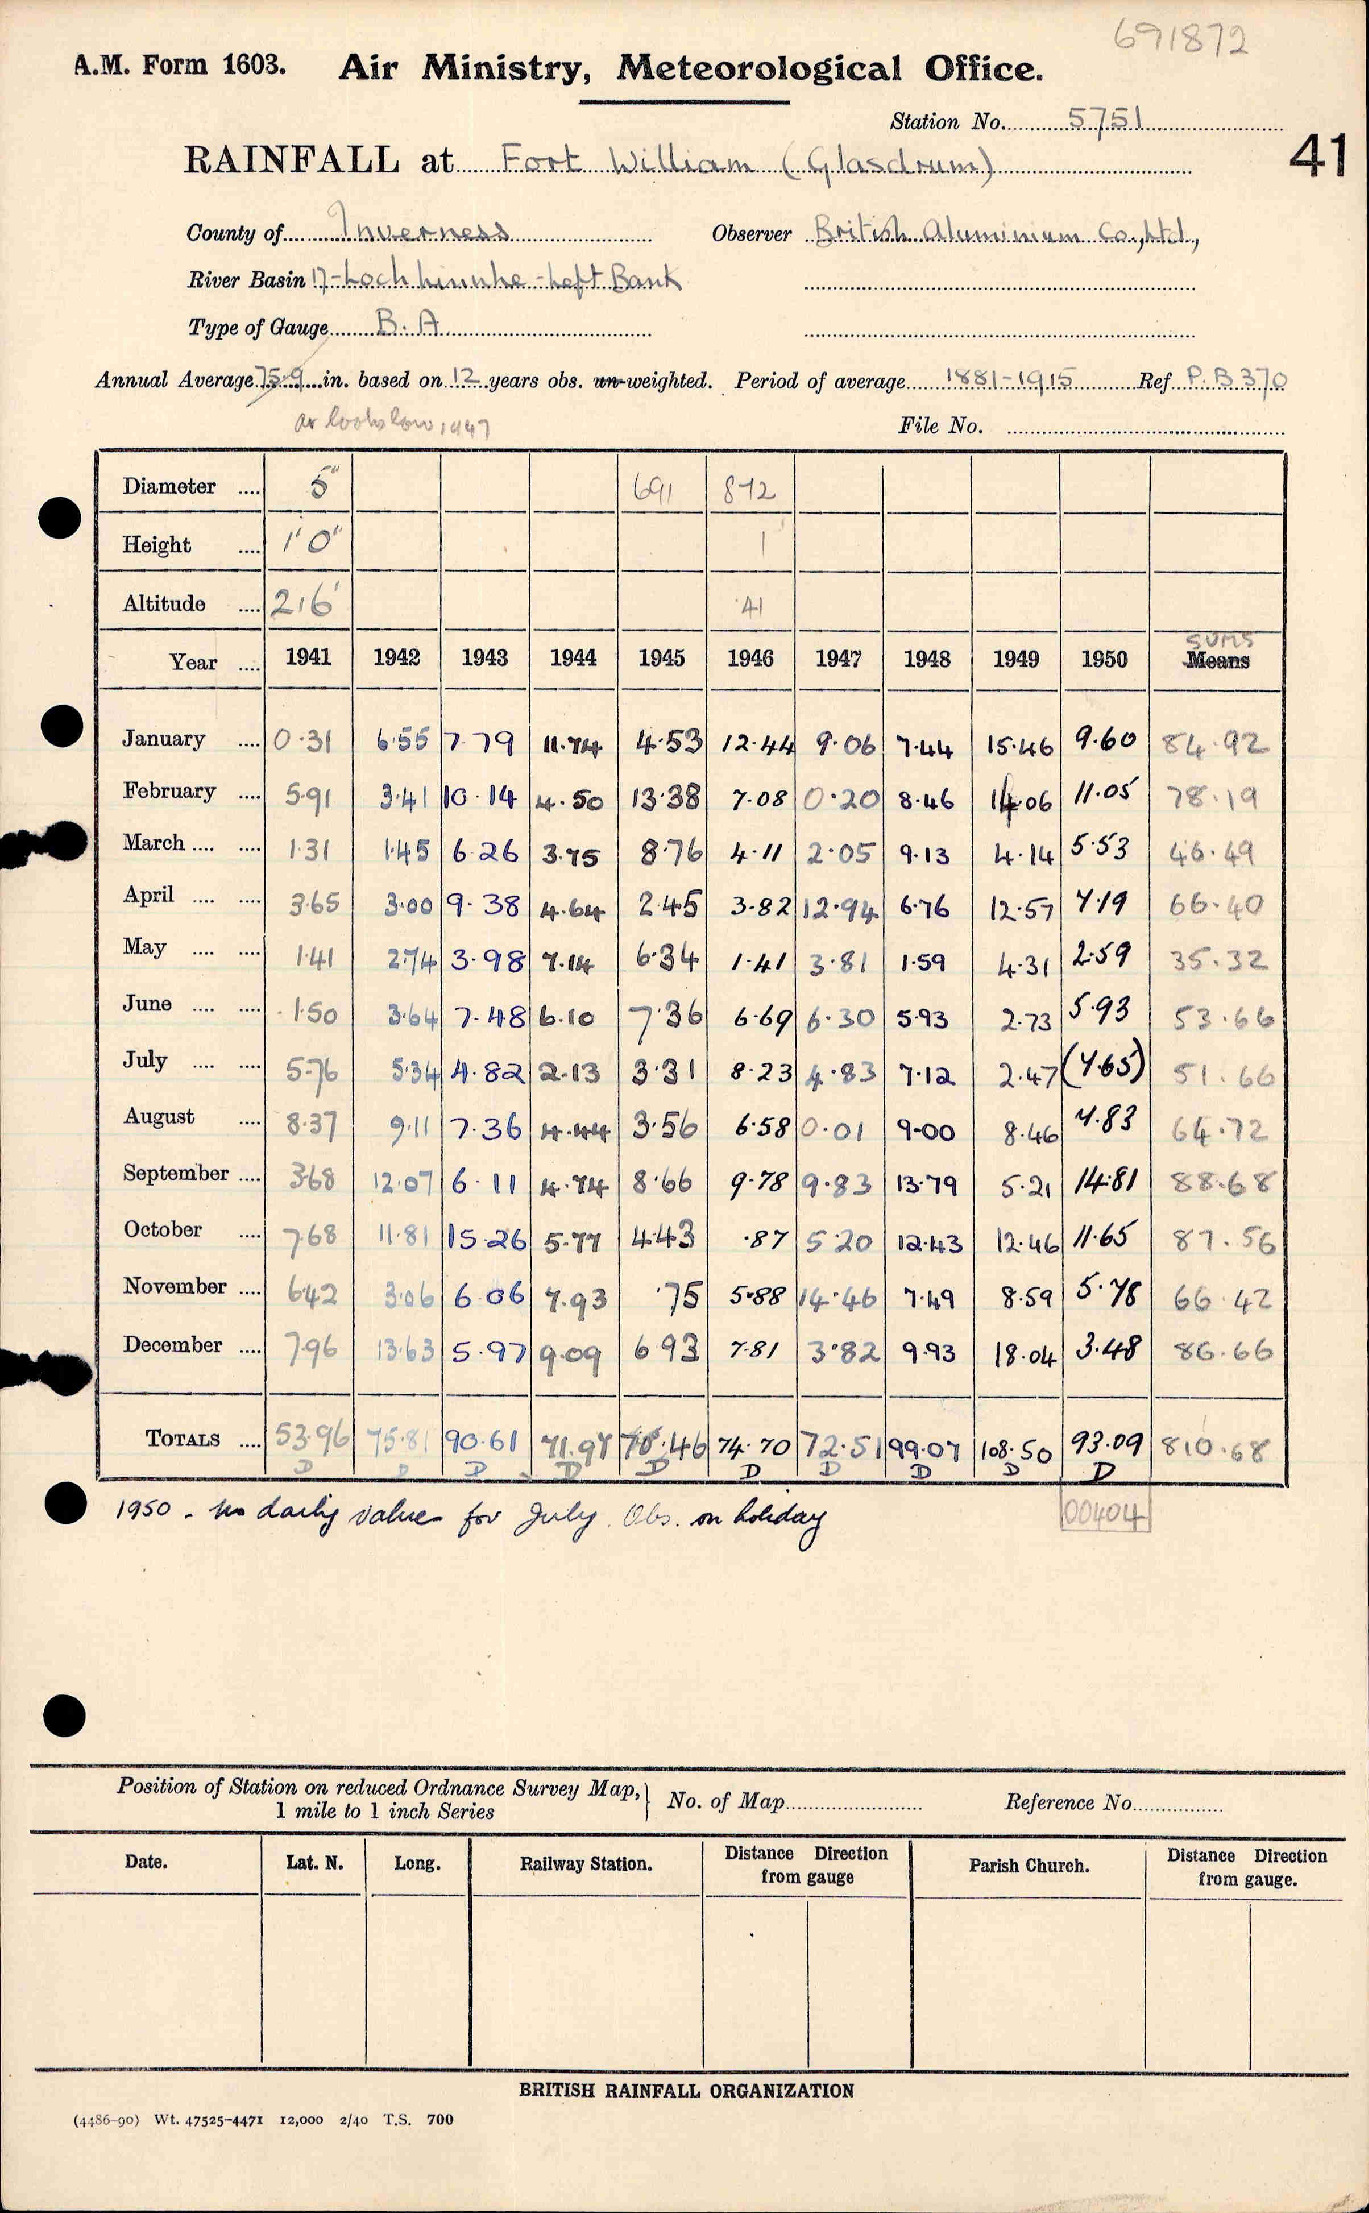 691872
A.M. Form 1603. Air Ministry, Meteorological Office.
Station No. 5751
41
RAINFALL at Fort William (Glasdrum)
County of Inverness Observer British Aluminium Co., Ltd.,
River Basin 17-Loch Linnhe-Left Bank
Type of Gauge B.A
Annual Average 75.9 in. based on 12 years obs. un-weighted. Period of average 1881-1915 Ref P.B370
av looks low 1947
File No.
Diameter .... 5" 691 872
Height .... 1' 0" 1
Altitude .... 216' 41
sums
Year .... 1941 1942 1943 1944 1945 1946 1947 1948 1949 1950 Means
January .... 0.31 6.55 7.79 11.74 4.53 12.44 9.06 7.44 15.46 9.60 84.92
February .... 5.91 3.41 10.14 4.50 13.38 7.08 0.20 8.46 14.06 11.05 78.19
March .... .... 1.31 1.45 6.26 3.75 8.76 4.11 2.05 9.13 4.14 5.53 46.49
April .... .... 3.65 3.00 9.38 4.64 2.45 3.82 12.94 6.76 12.57 7.19 66.40
May .... .... 1.41 2.74 3.98 7.14 6.34 1.41 3.81 1.59 4.31 2.59 35.32
June .... .... 1.50 3.64 7.48 6.10 7.36 6.69 6.30 5.93 2.73 5.93 53.66
July .... .... 5.76 5.34 4.82 2.13 3.31 8.23 4.83 7.12 2.47 (7.65) 51.66
August .... 8.37 9.11 7.36 4.44 3.56 6.58 0.01 9.00 8.46 7.83 64.72
September .... 3.68 12.07 6.11 4.74 8.66 9.78 9.83 13.79 5.21 14.81 88.68
October .... 7.68 11.81 15.26 5.77 4.43 .87 5.20 12.43 12.46 11.65 87.56
November .... 6.42 3.06 6.06 7.93 .75 5.88 14.46 7.49 8.59 5.78 66.42
December .... 7.96 13.63 5.97 9.09 6.93 7.81 3.82 9.93 18.04 3.48 86.66
TOTALS .... 53.96 75.81 90.61 71.97 70.46 74.70 72.51 99.07 108.50 93.09 810.68
D D D D D D D D D D
1950 - no daily values for July. Obs. on holiday
00404
Position of Station on reduced Ordnance Survey Map,
1 mile to 1 inch Series
No. of Map Reference No.
Date. Lat. N. Long. Railway Station. Distance Direction from gauge Parish Church. Distance Direction from gauge.
BRITISH RAINFALL ORGANIZATION
(4486-90) Wt. 47525-4471 12,000 2/40 T.S. 700